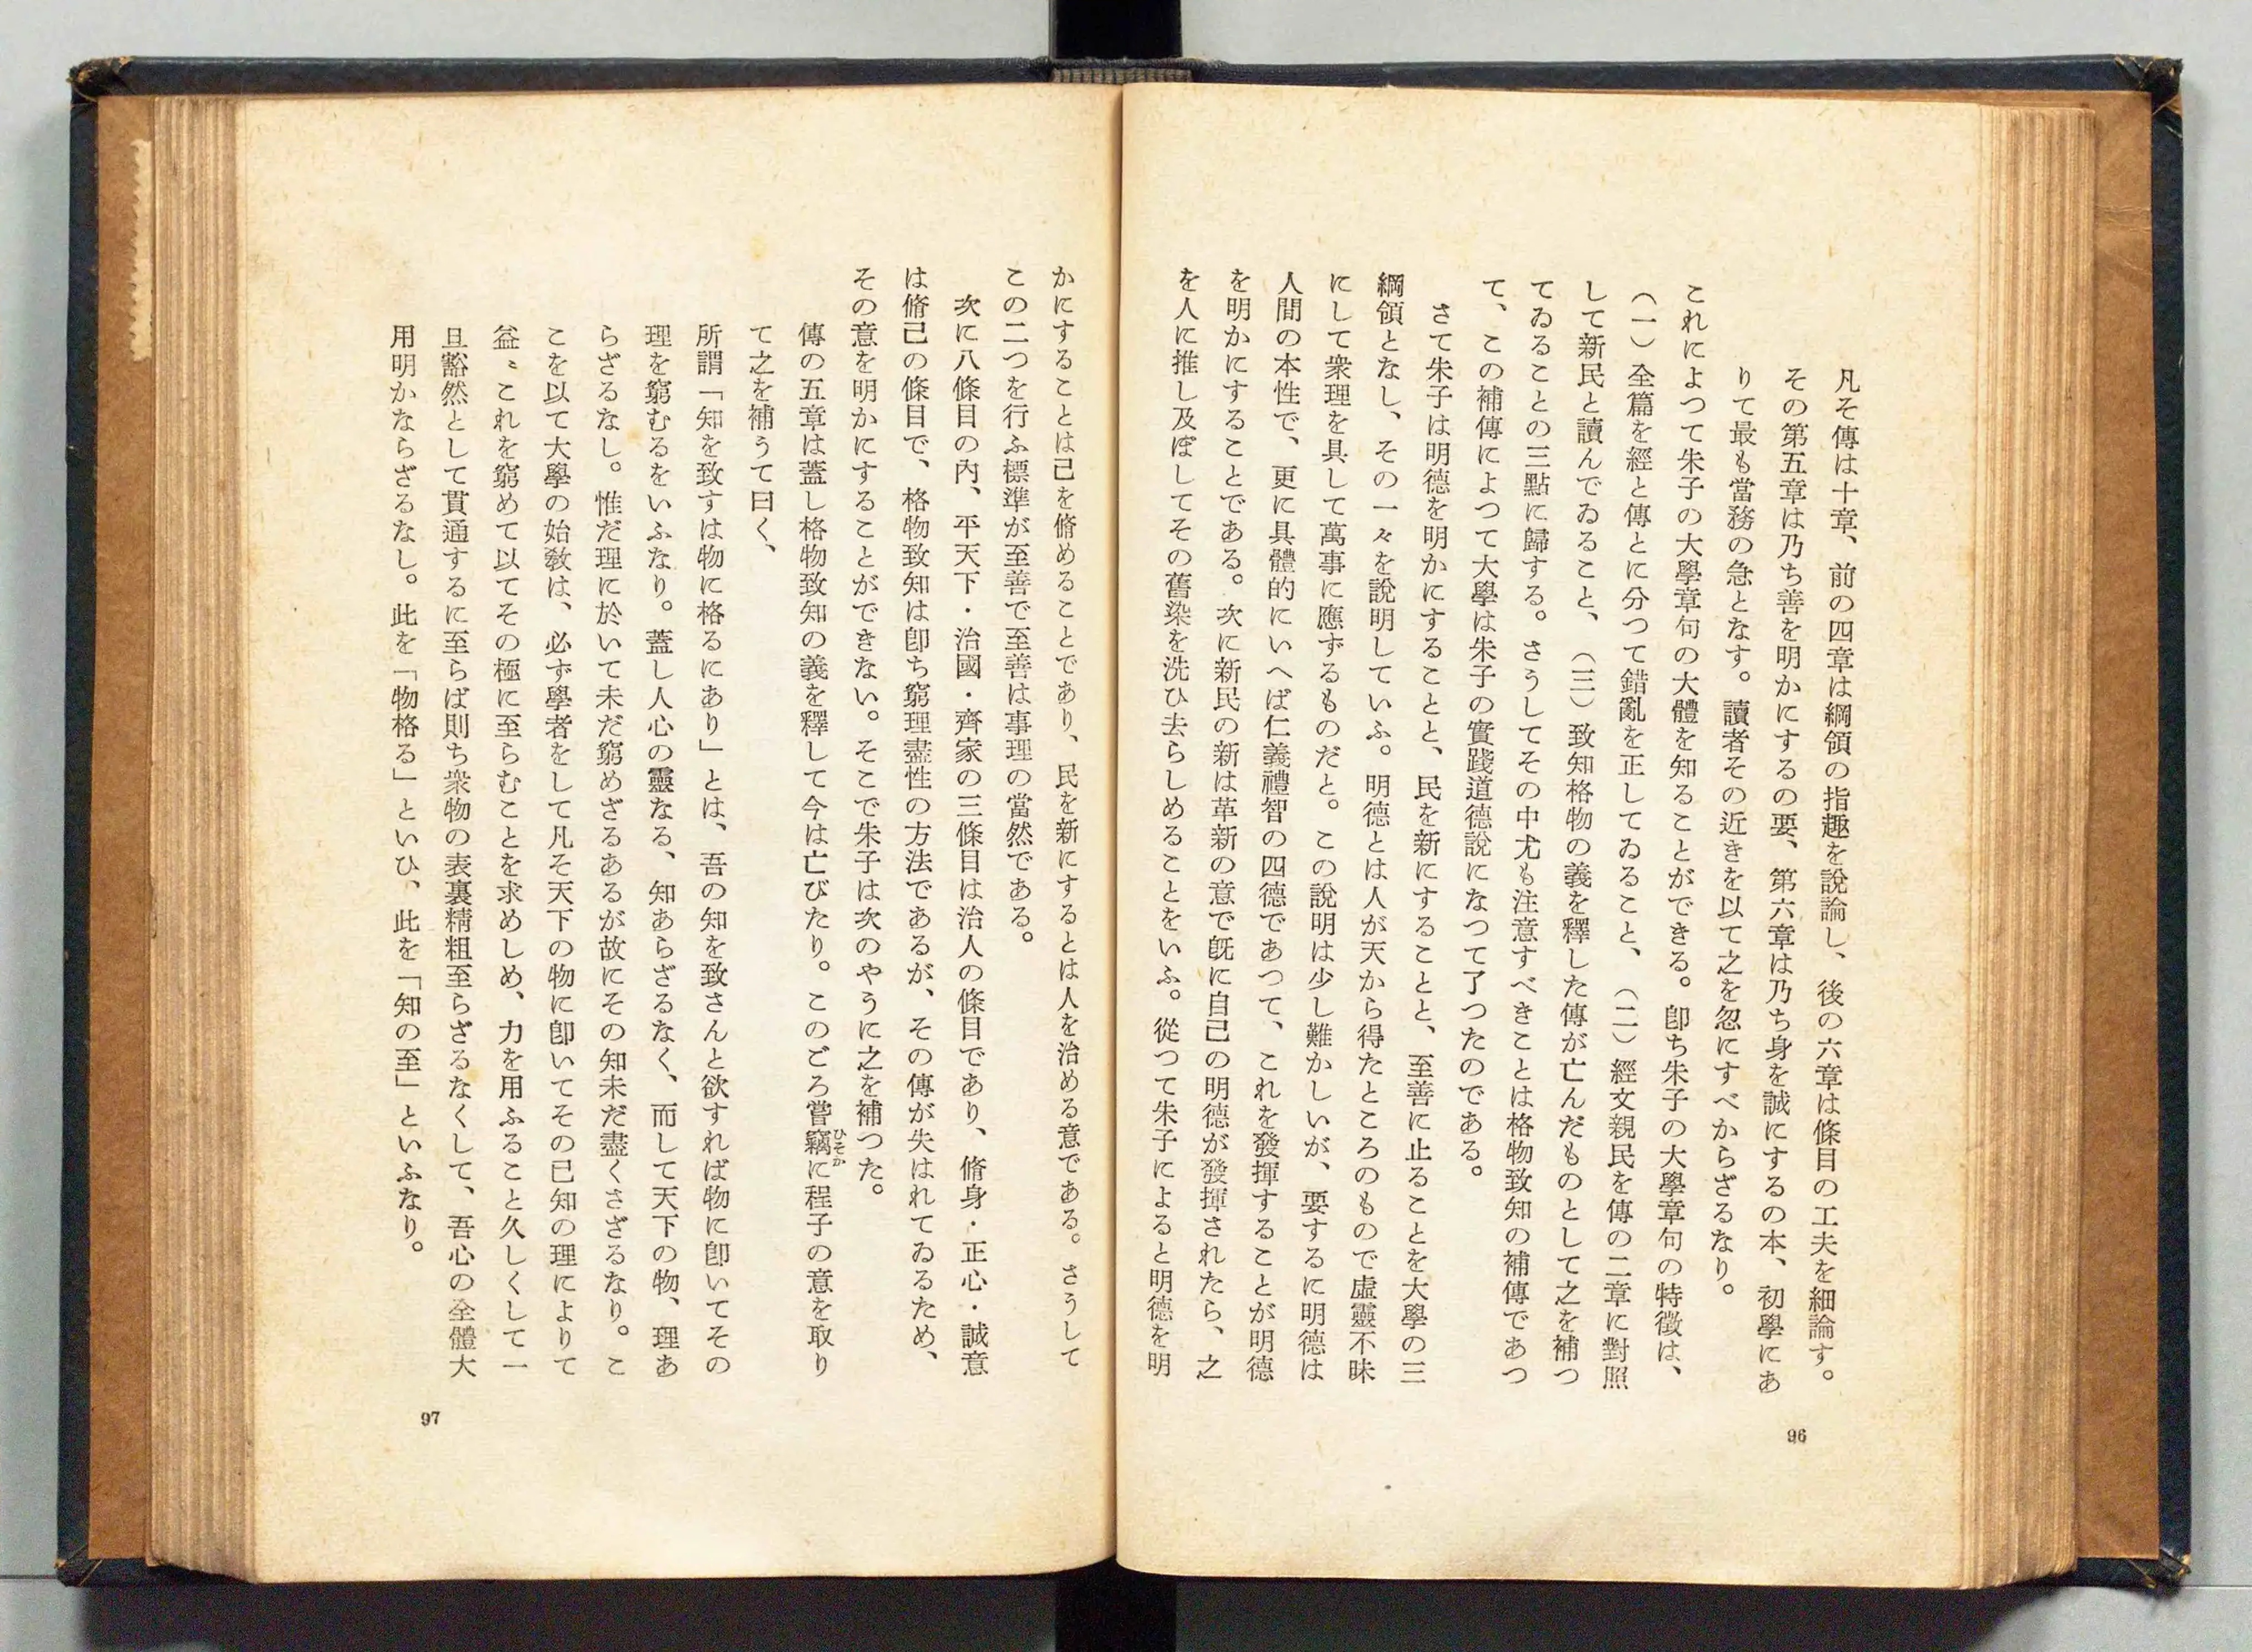 凡そ傳は十章、前の四章は綱領の指趣を說論し、後の六章は條目の工夫を細論す。
その第五章は乃ち善を明かにするの要、第六章は乃ち身を誠にするの本、初學にあ
りて最も當務の急となす。讀者その近きを以て之を忽にすべからざるなり。
これによつて朱子の大學章句の大體を知ることができる。卽ち朱子の大學章句の特徵は、
（一）全篇を經と傳とに分つて錯亂を正してゐること、（二）經文親民を傳の二章に對照
して新民と讀んでゐること、（三）致知格物の義を釋した傳が亡んだものとして之を補つ
てゐることの三點に歸する。さうしてその中尤も注意すべきことは格物致知の補傳であつ
て、この補傳によつて大學は朱子の實踐道德說になつて了つたのである。
さて朱子は明德を明かにすることと、民を新にすることと、至善に止ることを大學の三
綱領となし、その一々を說明していふ。明德とは人が天から得たところのもので虛靈不昧
にして衆理を具して萬事に應ずるものだと。この說明は少し難かしいが、要するに明德は
人間の本性で、更に具體的にいへば仁義禮智の四德であつて、これを發揮することが明德
を明かにすることである。次に新民の新は革新の意で旣に自己の明德が發揮されたら、之
を人に推し及ぼしてその舊染を洗ひ去らしめることをいふ。從つて朱子によると明德を明
96
かにすることは己を脩めることであり、民を新にするとは人を治める意である。さうして
この二つを行ふ標準が至善で至善は事理の當然である。
次に八條目の內、平天下・治國・齊家の三條目は治人の條目であり、脩身・正心・誠意
は脩己の條目で、格物致知は卽ち窮理盡性の方法であるが、その傳が失はれてゐるため、
その意を明かにすることができない。そこで朱子は次のやうに之を補つた。
傳の五章は蓋し格物致知の義を釋して今は亡びたり。このごろ嘗竊ひそかに程子の意を取り
て之を補うて曰く、
所謂「知を致すは物に格るにあり」とは、吾の知を致さんと欲すれば物に卽いてその
理を窮むるをいふなり。蓋し人心の靈なる、知あらざるなく、而して天下の物、理あ
らざるなし。惟だ理に於いて未だ窮めざるあるが故にその知未だ盡くさざるなり。こ
こを以て大學の始敎は、必ず學者をして凡そ天下の物に卽いてその已知の理によりて
益〻これを窮めて以てその極に至らむことを求めしめ、力を用ふること久しくして一
旦豁然として貫通するに至らば則ち衆物の表裏精粗至らざるなくして、吾心の全體大
用明かならざるなし。此を「物格る」といひ、此を「知の至」といふなり。
97